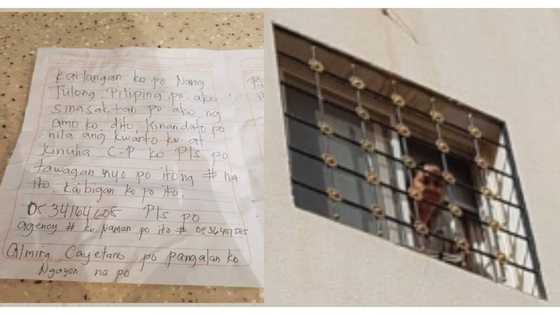 Kailangan ko po Nang
Tulong Piliping po ako
sinasaktan po ako ng
amo ko dito, kinandato po
nila ang kwarto ko at
kinuha C-P ko Pls po
tawagan nyo po itong # na
ito kaibigan ko po ito,
0534164605 Pls po
agency # ko Naman po ito #
Gimira Cayetano po pangalan ko
Ngayon na po